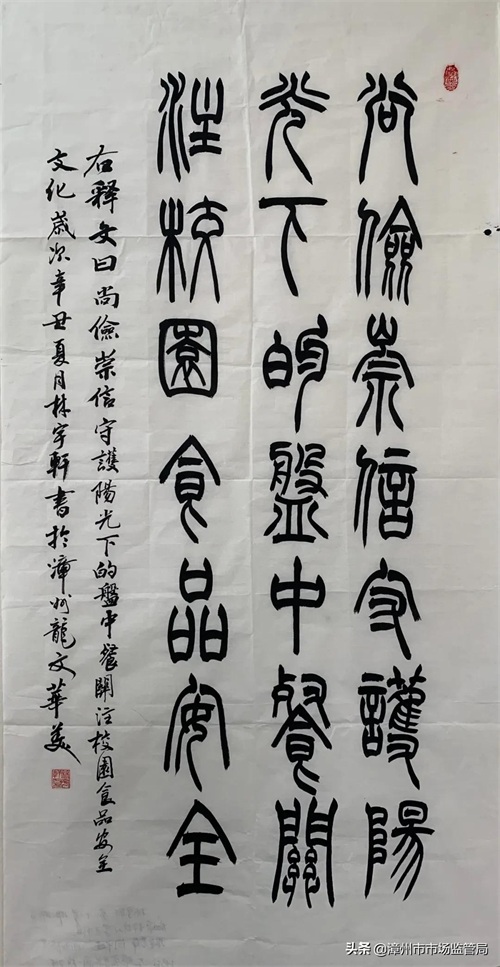 尚儉崇信守護陽
光下的盤中餐關
注校園食品安全
右釋文曰尚儉崇信守護陽光下的盤中餐關注校園食品安全
文化歲次辛丑夏月林宇軒書於漳州龍文華美
头条 @漳州市市场监管局